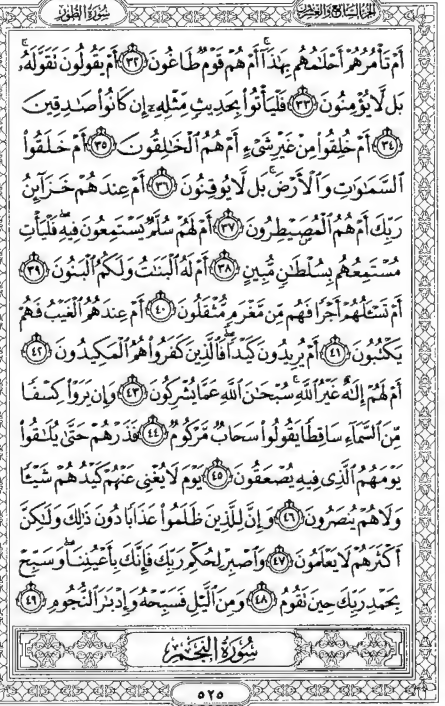 سُورَةُ الطُّورِ
الجُزْءُ السَّابِعُ وَالْعِشْرُونَ
أَمْ تَأْمُرُهُمْ أَحْلَٰمُهُم بِهَٰذَآ ۚ أَمْ هُمْ قَوْمٌ طَاغُونَ ٣٢ أَمْ يَقُولُونَ تَقَوَّلَهُۥ ۚ
بَل لَّا يُؤْمِنُونَ ٣٣ فَلْيَأْتُوا۟ بِحَدِيثٍ مِّثْلِهِۦٓ إِن كَانُوا۟ صَٰدِقِينَ
٣٤ أَمْ خُلِقُوا۟ مِنْ غَيْرِ شَىْءٍ أَمْ هُمُ ٱلْخَٰلِقُونَ ٣٥ أَمْ خَلَقُوا۟
ٱلسَّمَٰوَٰتِ وَٱلْأَرْضَ ۚ بَل لَّا يُوقِنُونَ ٣٦ أَمْ عِندَهُمْ خَزَآئِنُ
رَبِّكَ أَمْ هُمُ ٱلْمُصَۣيْطِرُونَ ٣٧ أَمْ لَهُمْ سُلَّمٌ يَسْتَمِعُونَ فِيهِ ۖ فَلْيَأْتِ
مُسْتَمِعُهُم بِسُلْطَٰنٍ مُّبِينٍ ٣٨ أَمْ لَهُ ٱلْبَنَٰتُ وَلَكُمُ ٱلْبَنُونَ ٣٩
أَمْ تَسْـَٔلُهُمْ أَجْرًا فَهُم مِّن مَّغْرَمٍ مُّثْقَلُونَ ٤٠ أَمْ عِندَهُمُ ٱلْغَيْبُ فَهُمْ
يَكْتُبُونَ ٤١ أَمْ يُرِيدُونَ كَيْدًا ۖ فَٱلَّذِينَ كَفَرُوا۟ هُمُ ٱلْمَكِيدُونَ ٤٢
أَمْ لَهُمْ إِلَٰهٌ غَيْرُ ٱللَّهِ ۚ سُبْحَٰنَ ٱللَّهِ عَمَّا يُشْرِكُونَ ٤٣ وَإِن يَرَوْا۟ كِسْفًا
مِّنَ ٱلسَّمَآءِ سَاقِطًا يَقُولُوا۟ سَحَابٌ مَّرْكُومٌ ٤٤ فَذَرْهُمْ حَتَّىٰ يُلَٰقُوا۟
يَوْمَهُمُ ٱلَّذِى فِيهِ يُصْعَقُونَ ٤٥ يَوْمَ لَا يُغْنِى عَنْهُمْ كَيْدُهُمْ شَيْـًٔا
وَلَا هُمْ يُنصَرُونَ ٤٦ وَإِنَّ لِلَّذِينَ ظَلَمُوا۟ عَذَابًا دُونَ ذَٰلِكَ وَلَٰكِنَّ
أَكْثَرَهُمْ لَا يَعْلَمُونَ ٤٧ وَٱصْبِرْ لِحُكْمِ رَبِّكَ فَإِنَّكَ بِأَعْيُنِنَا ۖ وَسَبِّحْ
بِحَمْدِ رَبِّكَ حِينَ تَقُومُ ٤٨ وَمِنَ ٱلَّيْلِ فَسَبِّحْهُ وَإِدْبَٰرَ ٱلنُّجُومِ ٤٩
سُورَةُ النَّجْمِ
٥٢٥